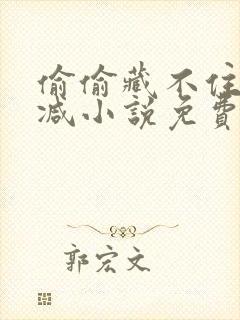 偷偷藏不住
减小説免費
郭宏文